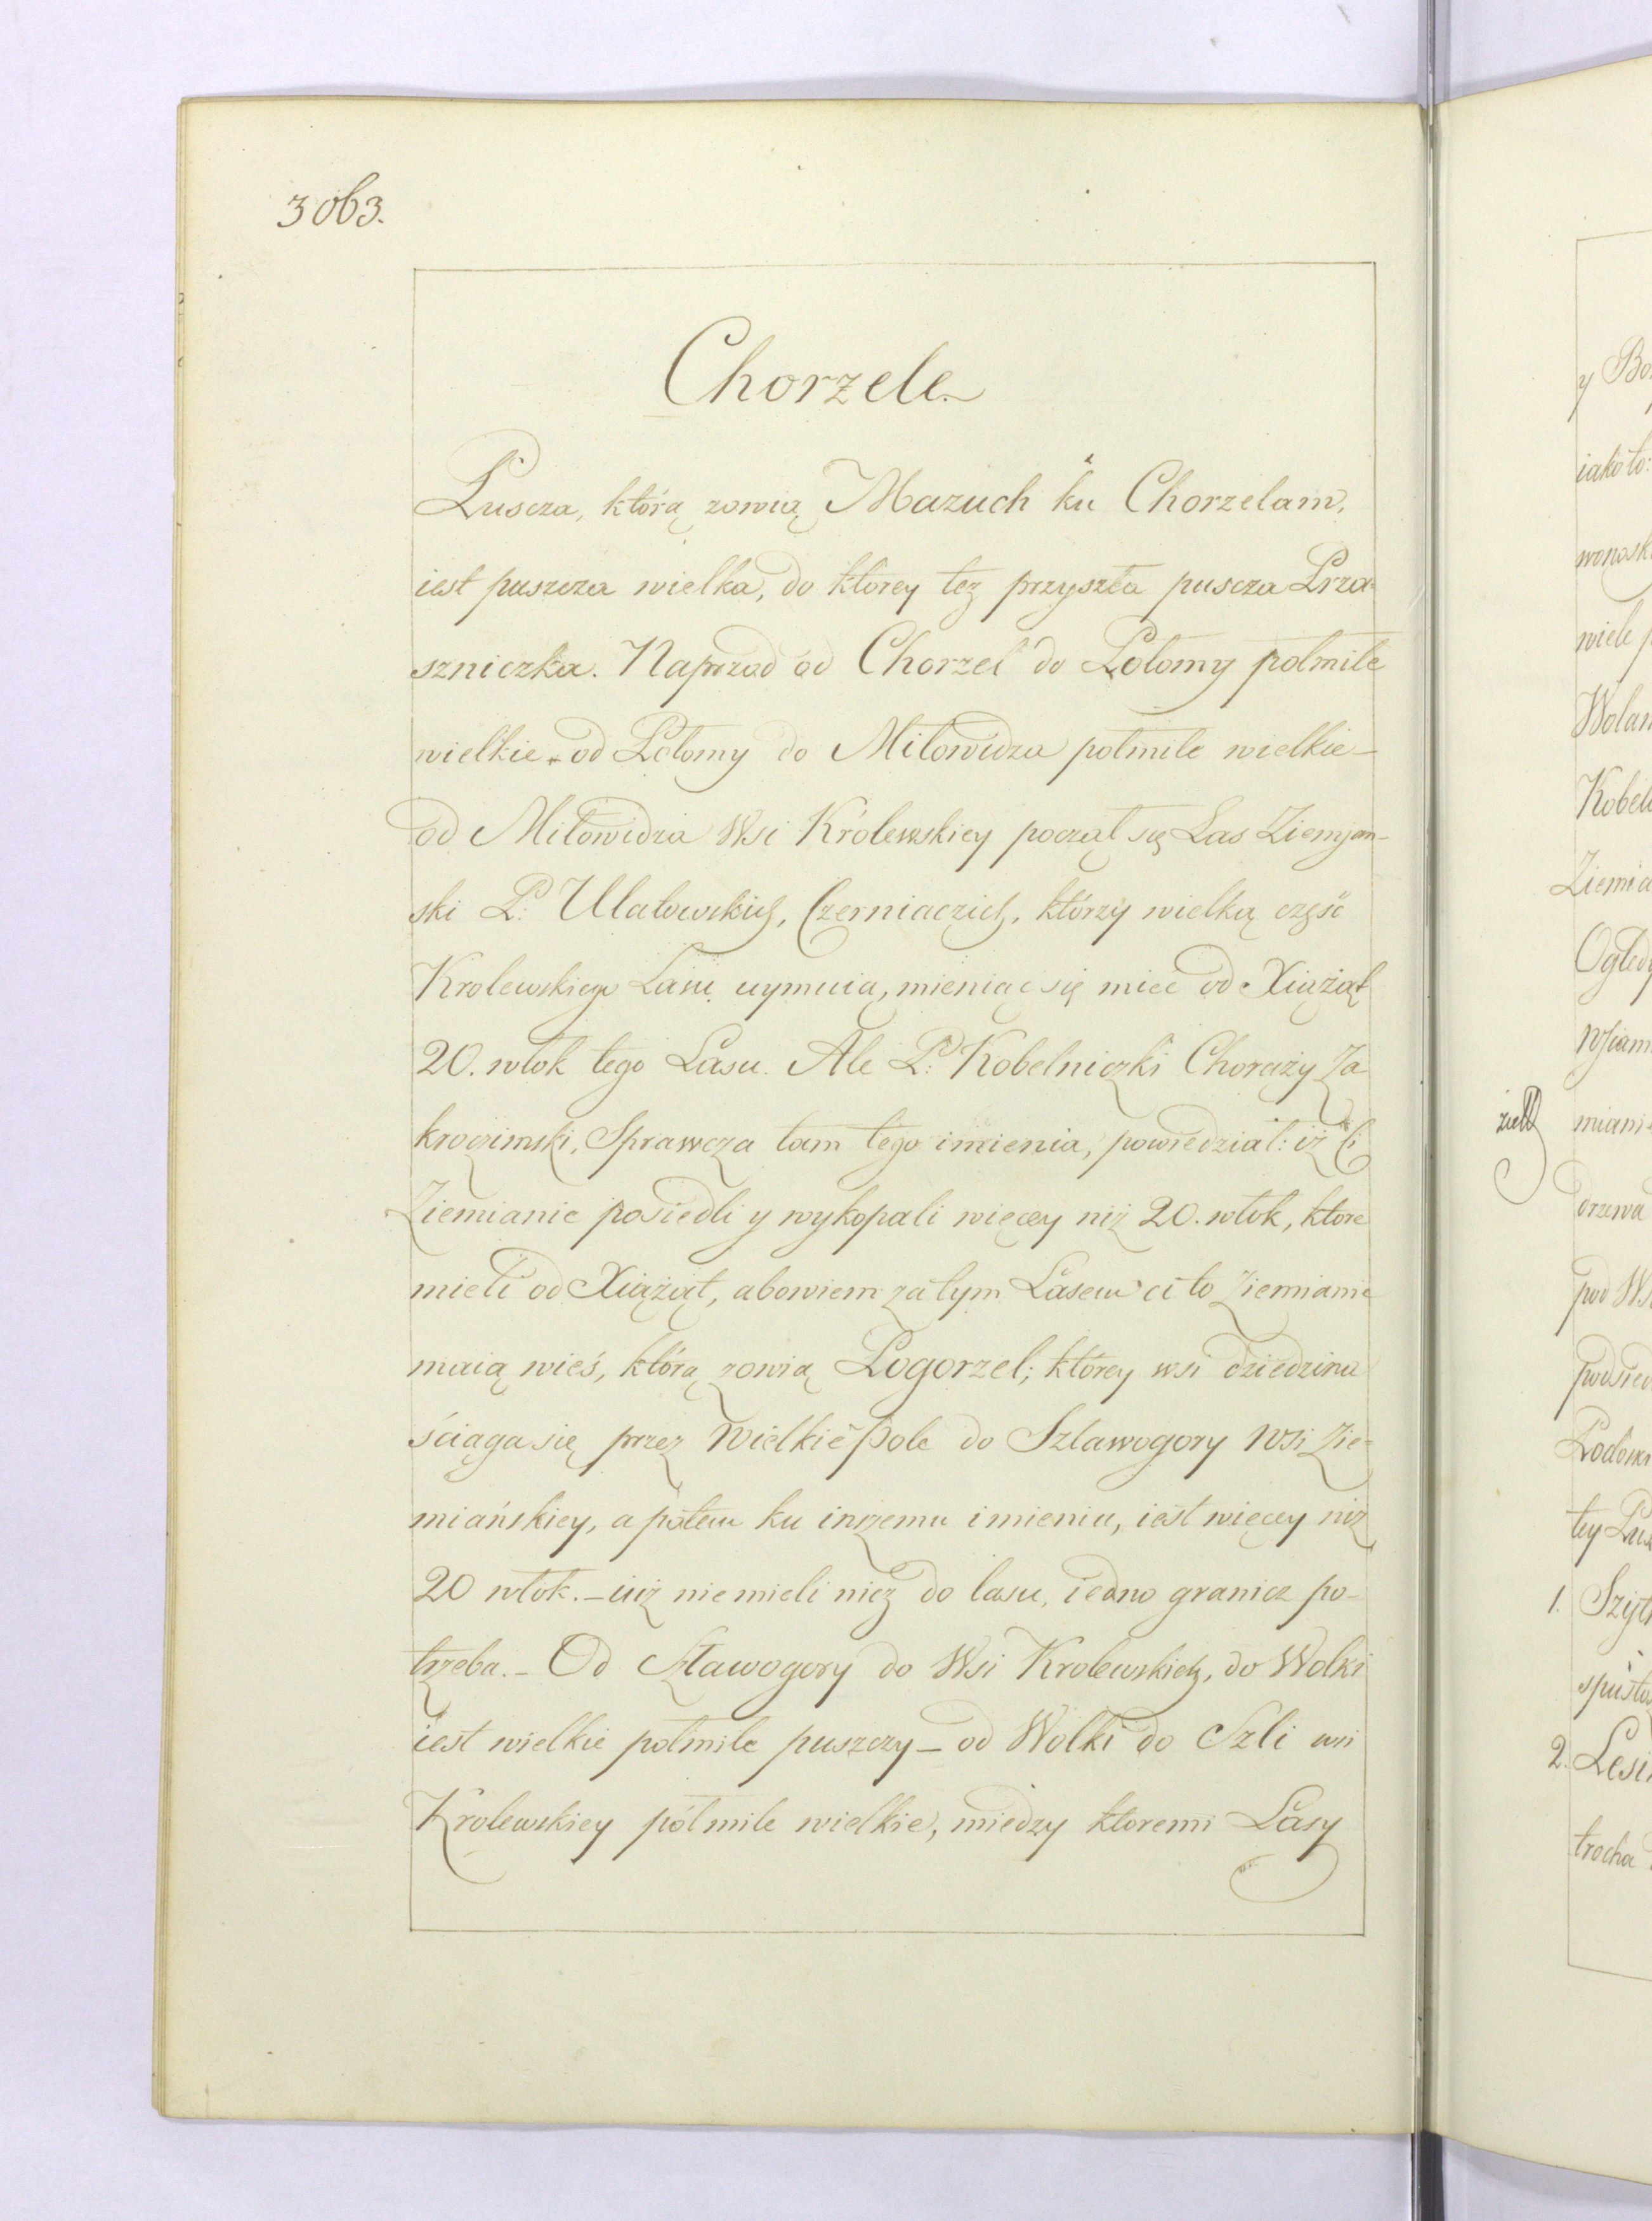 3063.
Chorzele.
Puscza, którą zowią Mazuch ku Chorzelam,
iest puszcza wielka, do ktorey tez przyszła puscza Prza-
szniczka. Naprzod od Chorzel do Połomy polmile
wielkie - od Połomy do Miłowidza połmile wielkie -
od Miłowidza Wsi Królewskiey począł się Las Ziemjan-
ski P: Ulatowskich, Czerniaczich, którzy wielką część
Krolewskiego Lasu uymuią, mieniąc się miec od Xiążąt
20. włok tego Lasu. Ale P: Kobelniczki Chorąży Za
kroczimski, Sprawcza tam tego imienia, powiedział: iż Ci
Ziemianie posiedli y wykopali więcey niż 20. włok, ktore
mieli od Xiążąt, abowiem za tym Lasem ci to Ziemianie
maią wieś, którą zowią Pogorzel; którey wsi dziedzina
ściąga się przez Wielkie Pole do Szlawogory Wsi Zie-
miańskiey, a potem ku inszemu imieniu, iest więcey niz
20 włok. - iuż nie mieli nicz do lasu, iedno granicz po-
trzeba. - Od Sławogory do Wsi Krolewskich, do Wolki
iest wielkie polmile puszczy - od Wolki do Szli wsi
Krolewskiey pólmile wielkie, miedzy ktoremi Lasy
y
iako to:
wiele
Ziemia
drzewa
pod
1.
2.
trocha